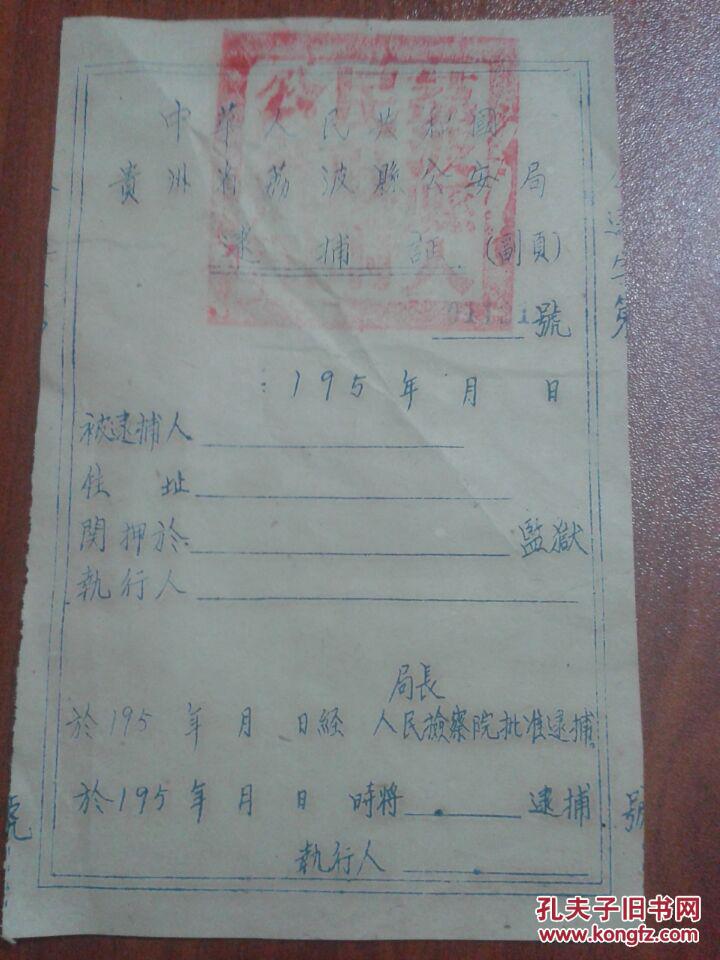 中华人民共和國
貴州省荔波縣公安局
逮捕証(副頁)
號
195 年 月 日
被逮捕人
住 址
関押於 監獄
執行人
局長
於195 年 月 日經 人民檢察院批准逮捕
於195 年 月 日 時將 逮捕
執行人
號
孔夫子旧书网
www.kongfz.com